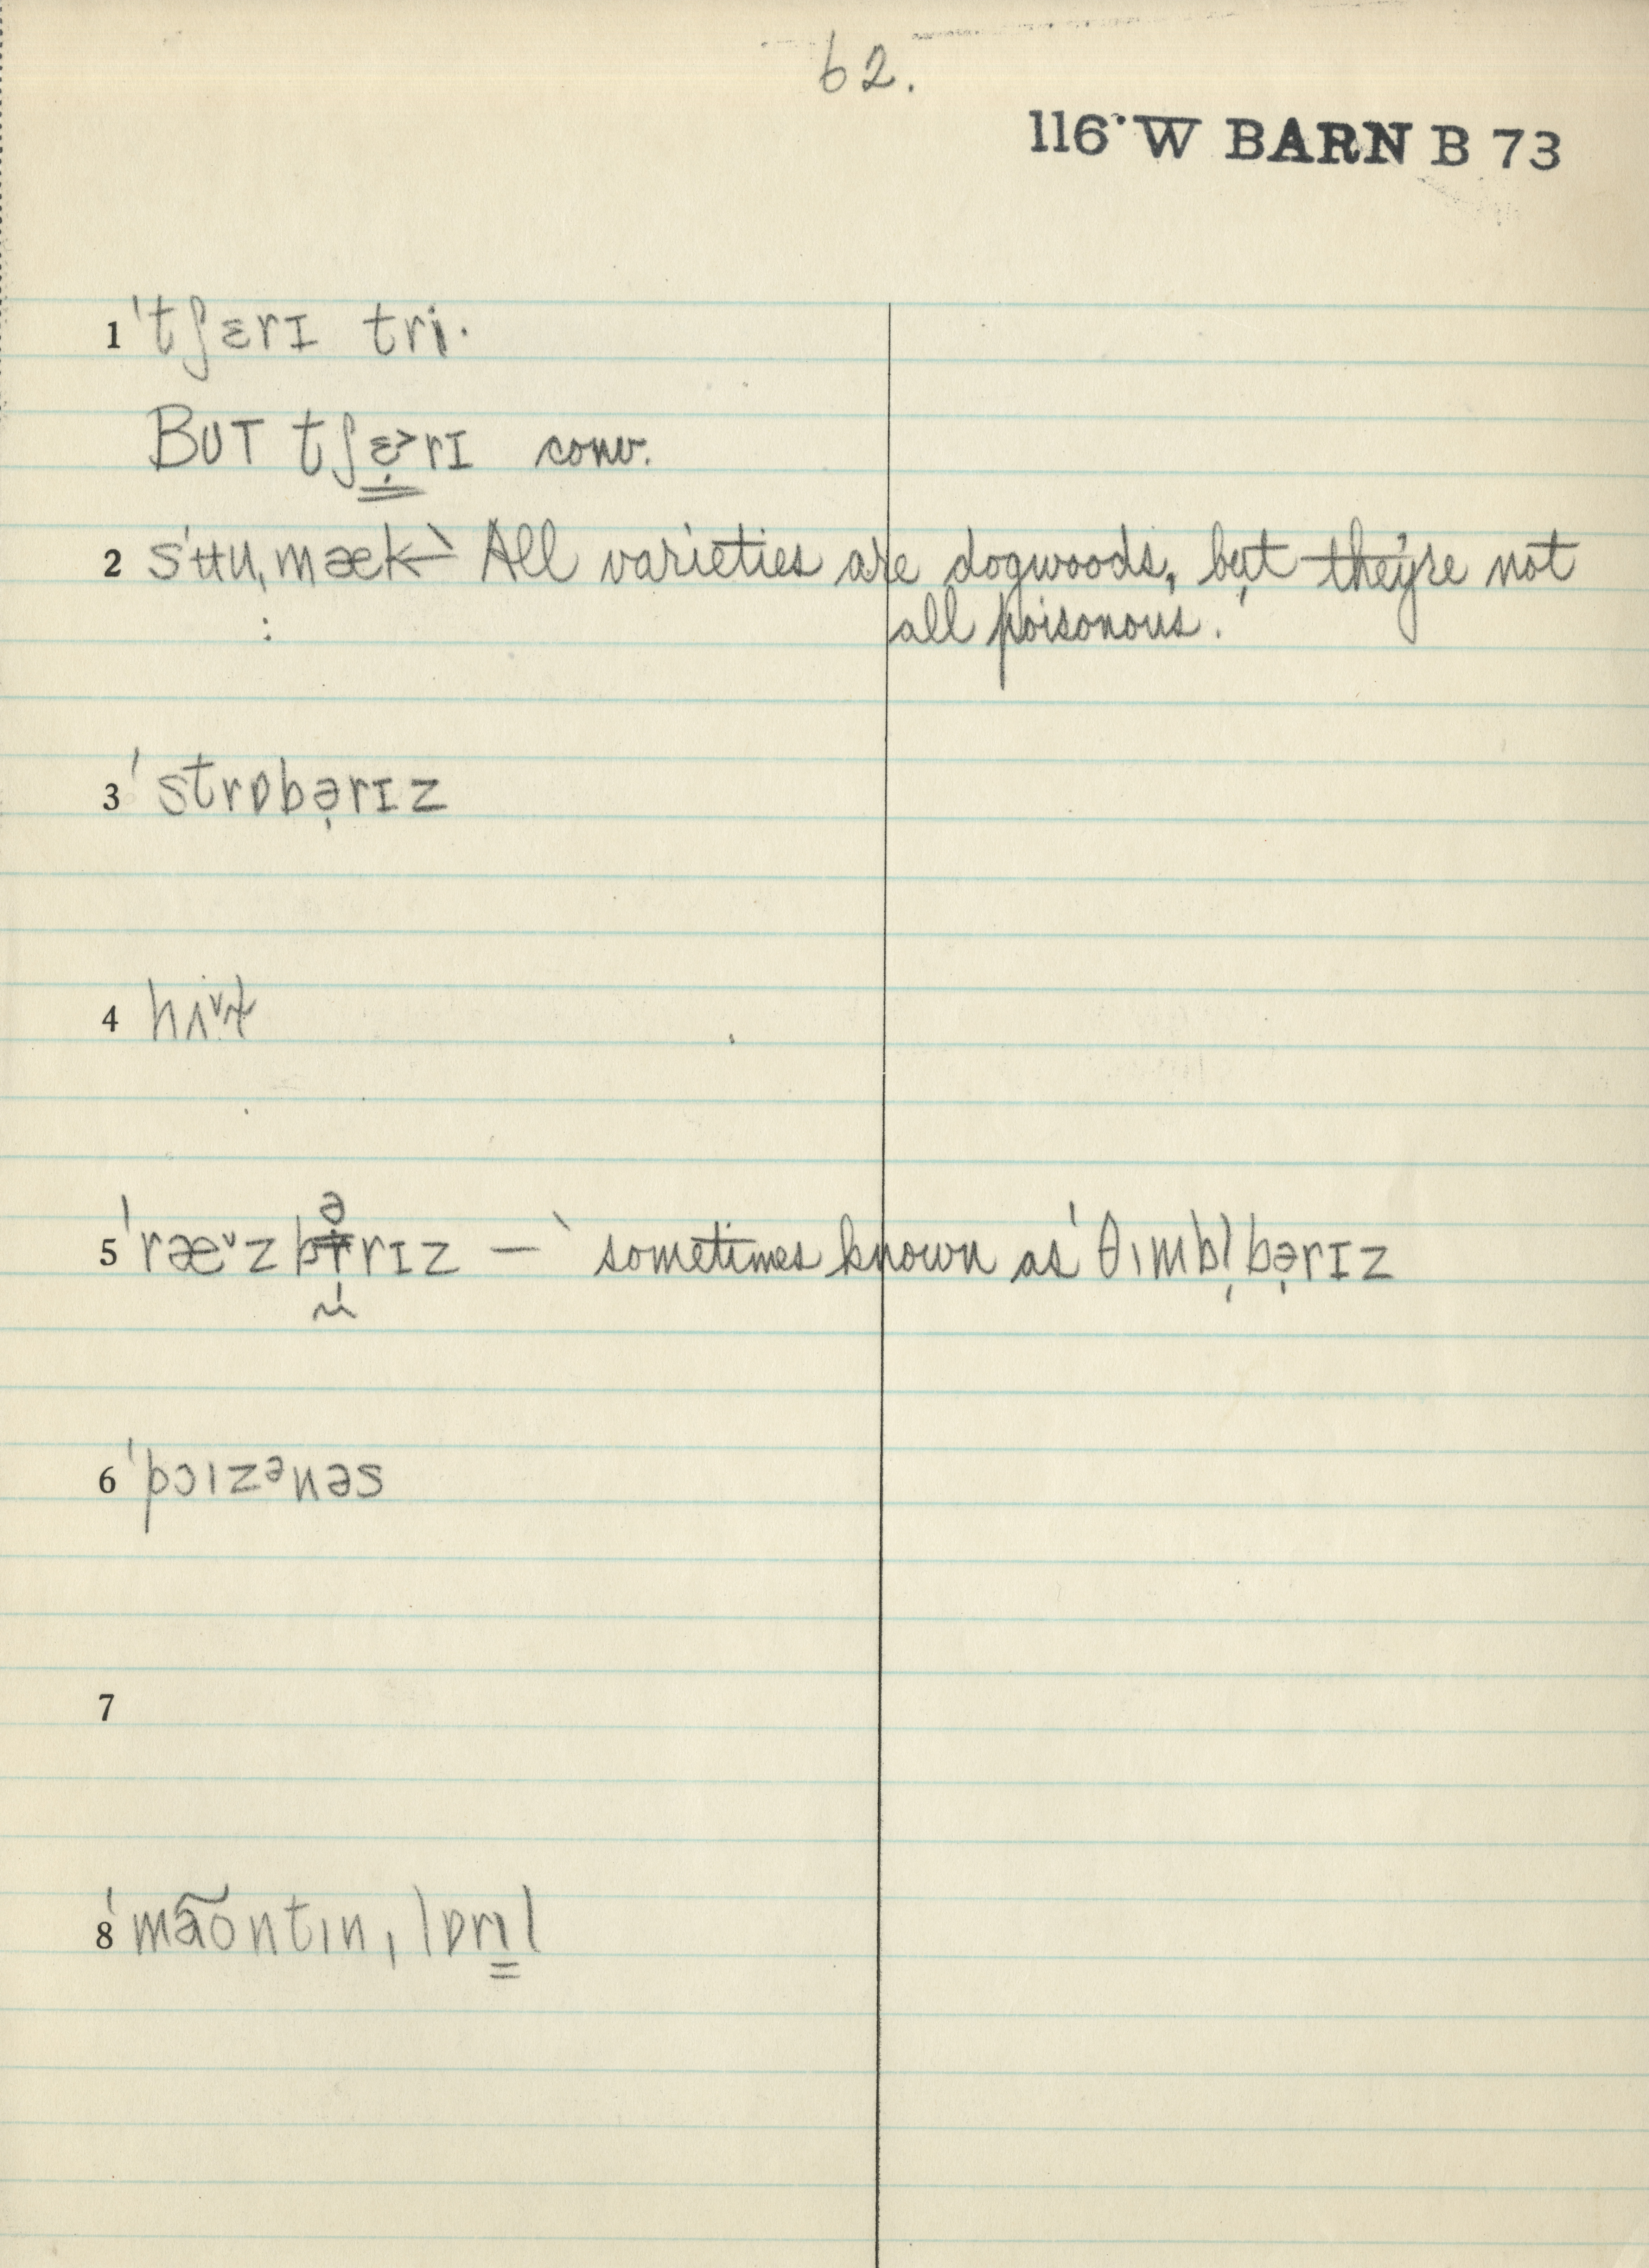 62.
116·W BARN B 73
1 ˈtʃɛrɪ tri·
BUT tʃɛ̣˃rɪ conv.
2 sˈʉuˌmæk← `All varieties are dogwoods, but they're not
all poisonous.'
3 ˈstrɒbə̣rɪz
4
5 ˈræ˅zbərɪz — `sometimes known as ˈθɪmbl̩bə̣rɪz
6 ˈpɔɪzᵊnəs
7
8 ˈmãõntɪnˌlɒrɪl